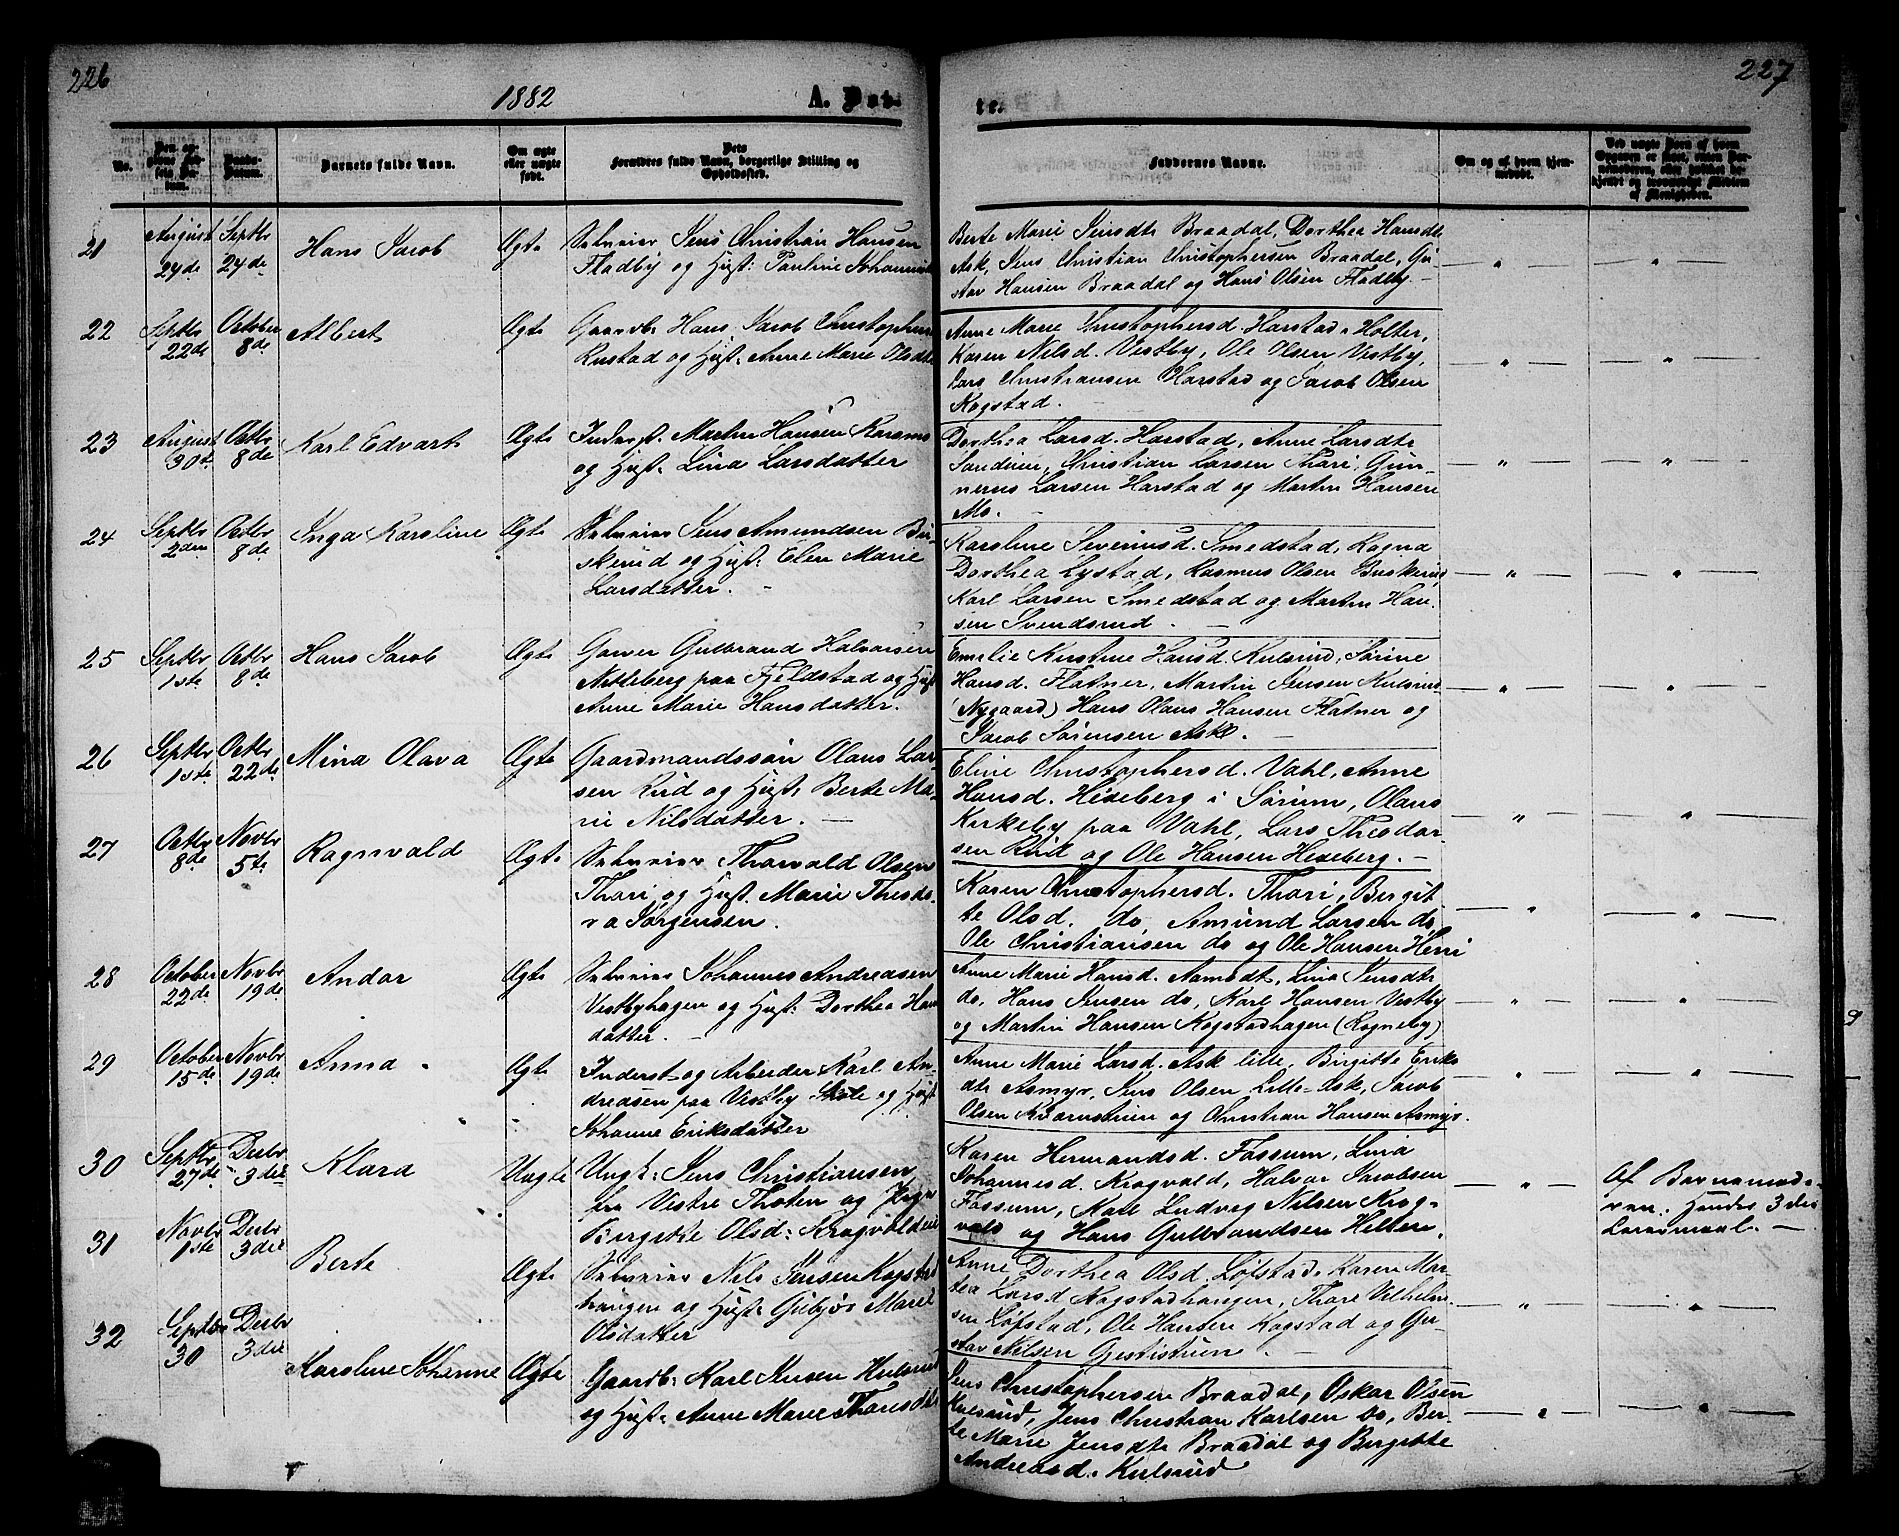 226
1882
A. Døb-
te.
227
No.
Barnets fulde Navn.
Om ægte eller uægte født.
Dets Forældres fulde Navn, borgerlige Stilling og Opholdssted.
Faddernes Navne.
Om og af hvem hjemmedøbt.
21
August 24de
Septbr 24de
Hans Jacob
Ægte
Selveier Jens Christian Hansen
Fladby og Hust: Pauline Johannesd
Berte Marie Jensdtr Braadal, Dorthea Hansdtr
Ask, Jens Christian Christophersen Braadal, Gu-
stav Hansen Braadal og Hans Olsen Fladby.
22
Septbr 22de
October 8de
Albert
Ægte
Gaardb: Hans Jacob Christophersen
Rustad og Hust: Anne Marie Olsdtr
Anne Marie Christophersd. Harstad, Holter,
Karen Nilsd. Vestby, Ole Olsen Vestby,
Lars Christiansen Harstad og Jacob Olsen
Kogstad.
23
August 30te
Octbr 8de
Karl Edvart
Ægte
Inderst. Martin Hansen
og Hust: Lina Larsdatter
Dorthea Larsd. Harstad, Anne Larsdtr
Christian Larsen Thari, Gun-
nerus Larsen Harstad og Martin Hansen
Mo.
24
Septbr 2den
Octbr 8de
Inga Karoline
Ægte
Selveier Jens Amundsen Bu-
skerud og Hust: Elen Marie
Larsdatter.
Karoline Severinsd. Smedstad, Ragna
Dorthea Lystad, Rasmus Olsen Buskerud
Karl Larsen Smedstad og Martin Han-
sen Svendsrud.
25
Septbr 1ste
Octbr 8de
Hans Jacob
Ægte
Garver Gulbrand Halvorsen
Nitteberg paa Fjeldstad og Hust
Anne Marie Hansdatter.
Emelie Kirstine Hansd. Kulsrud, Sørine
Hansd. Flatner, Martin Jensen Kulsrud
(Nygaard) Hans Olaus Hansen Flatner og
Jacob Sørensen Ask.
26
Septbr 1ste
Octbr 22de
Mina Olava
Ægte
Gaardmandssøn Olaus Lar-
sen Rud og Hust: Berte Ma-
rie Nilsdatter.
Eline Christophersd. Vahl, Anne
Hansd. Hexeberg i Sørum, Olaus
Kirkeby paa Vahl, Lars Theodor-
sen Rud og Ole Hansen Hexeberg.
27
Octbr 8de
Novbr 5te
Ragnvald
Ægte
Selveier Thorvald Olsen
Thari og Hust. Marie Theodo-
ra Jørgensen.
Karen Christophersd. Thari, Bergit-
te Olsd. do Amund Larsen do
Ole Christiansen do og Ole Hansen Herri
28
October 22de
Novbr 19de
Andor
Ægte
Selveier Johannes Andreasen
Vestbyhagen og Hust: Dorthea Hans
datter.
Anne Marie Hansd. Asmodt, Lina Jensdtr
do, Hans Jensen do, Karl Hansen Vestby
og Martin Hansen Kogstadhagen (Rogneby)
29
October 15de
Novbr 19de
Anna
Ægte
Inderst og Arbeider Karl An-
dreasen paa Vestby Skole og Hust
Johanne Eriksdatter
Anne Marie Larsd. Ask lille, Birgitte Eriks
dtr Asmyr, Jens Olsen Lille-Ask, Jacob
Olsen Kværnstuen og Christian Hansen Asmyr.
30
Septbr 27de
Decbr 3die
Klara
Uægte
Ungk: Jens Christiansen
fra Vestre Thoten og Pige
Bergitte Olsd: Krogvoldeie
Karen Hermandsd. Fossum, Lina
Johannesd. Krogvold, Halvor Jacobsen
Fossum, Karl Ludvig Nilsen Krog-
vold og Hans Gulbrandsen Hellen.
Af Barnemode-
ren. Hendes 3die
Leiermaal.
31
Novbr 1ste
Decbr 3die
Berte
Ægte
Selveier Nils Jensen Kogstad
haugen og Hust: Gubjør Marie
Olsdatter
Anne Dorthea Olsd. Løfstad, Karen Mar-
tea Larsd Kogstadhaugen, Thore Vilhelm-
sen Løfstad, Ole Hansen Kogstad og Gu-
stav Nilsen Gjestistuen.
32
Septbr 30
Decbr 3die
Karoline Johanne
Ægte
Gaardb: Karl Jensen Kulsrud
og Hust: Anne Marie Thorsdtr
Jens Christophersen Braadal, Oskar Olsen
Kulsrud, Jens Christian Karlsen do, Ber-
te Marie Jensdtr Braadal og Bergitte
Andreasd. Kulsrud